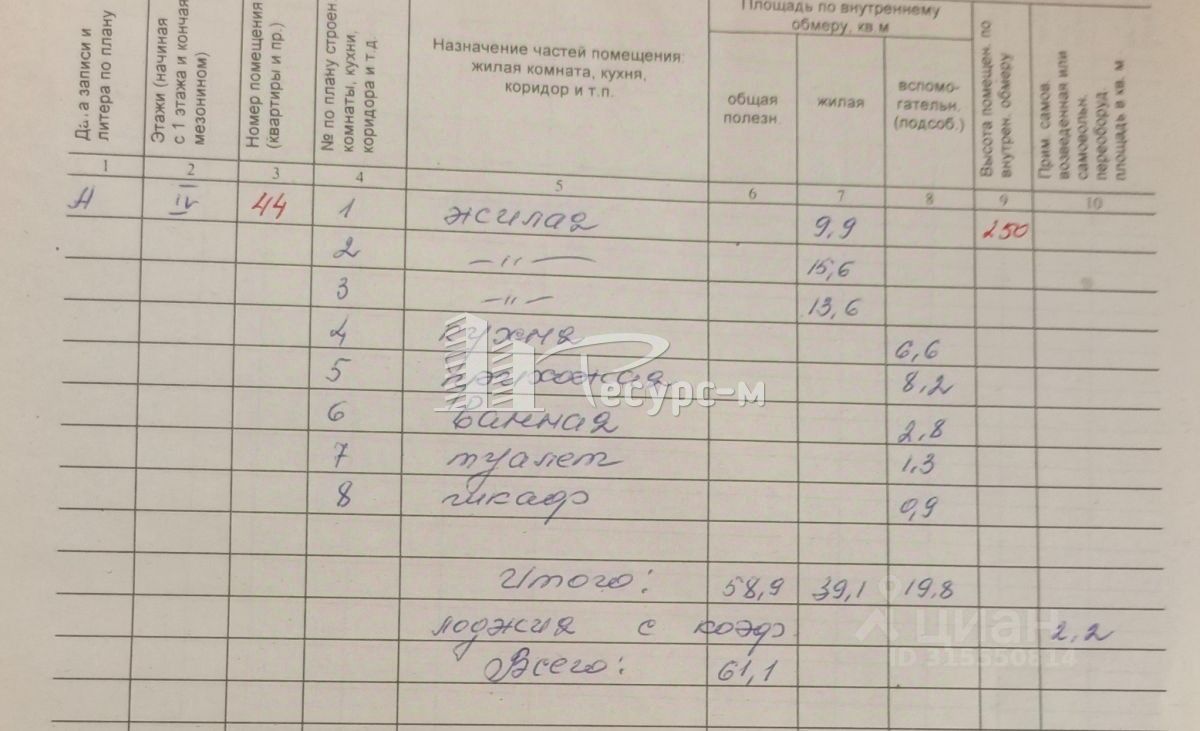 Дата записи и литера по плану
Этажи (начиная с 1 этажа и кончая мезонином)
Номер помещения (квартиры и пр.)
№ по плану строен. комнаты, кухни, коридора и т.д.
Назначение частей помещения: жилая комната, кухня, коридор и т.п.
Площадь по внутреннему обмеру, кв.м
общая полезн.
жилая
вспомо-
гательн.
(подсоб.)
Высота помещен. по внутрен. обмеру
Прим. самов. возведенная или самовольн. переоборуд. площадь в кв. м
1 2 3 4 5 6 7 8 9 10
А IV 44 1 жилая 9,9 250
2 —"— 15,6
3 —"— 13,6
4 кухня 6,6
5 прихожая 8,2
6 Ванная 2,8
7 туалет 1,3
8 шкаф 0,9
Итого: 58,9 39,1 19,8
лоджия с коэф 2,2
Всего: 61,1
Ресурс-м
циан
ID 315550814